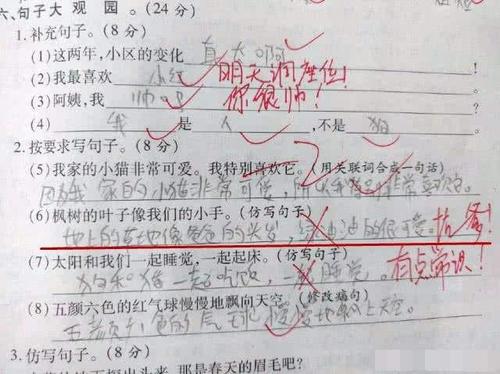 六、句子大观园。(24分)
1.补充句子。(8分)
(1)这两年,小区的变化 真大啊 !
(2)我最喜欢 小红 明天调座位! !
(3)阿姨,我 帅 你很帅! !
(4) 我 是 人 ,不是 狗
2.按要求写句子。(8分)
(5)我家的小猫非常可爱。我特别喜欢它。(用关联词合成一句话)
因为我家的小猫非常可爱,所以我特别非常喜欢它。
(6)枫树的叶子像我们的小手。(仿写句子)
地上的草地像爸爸的头发,绿油油的很可爱。抗争!
(7)太阳和我们一起睡觉,一起起床。(仿写句子)
狗和猪一起吃饭,睡觉。有点常识!
(8)五颜六色的红气球慢慢地飘向天空。(修改病句)
五颜六色的气球慢慢地飘上天空。
3.仿写句子。(8分)
那是春天的眉毛吧?